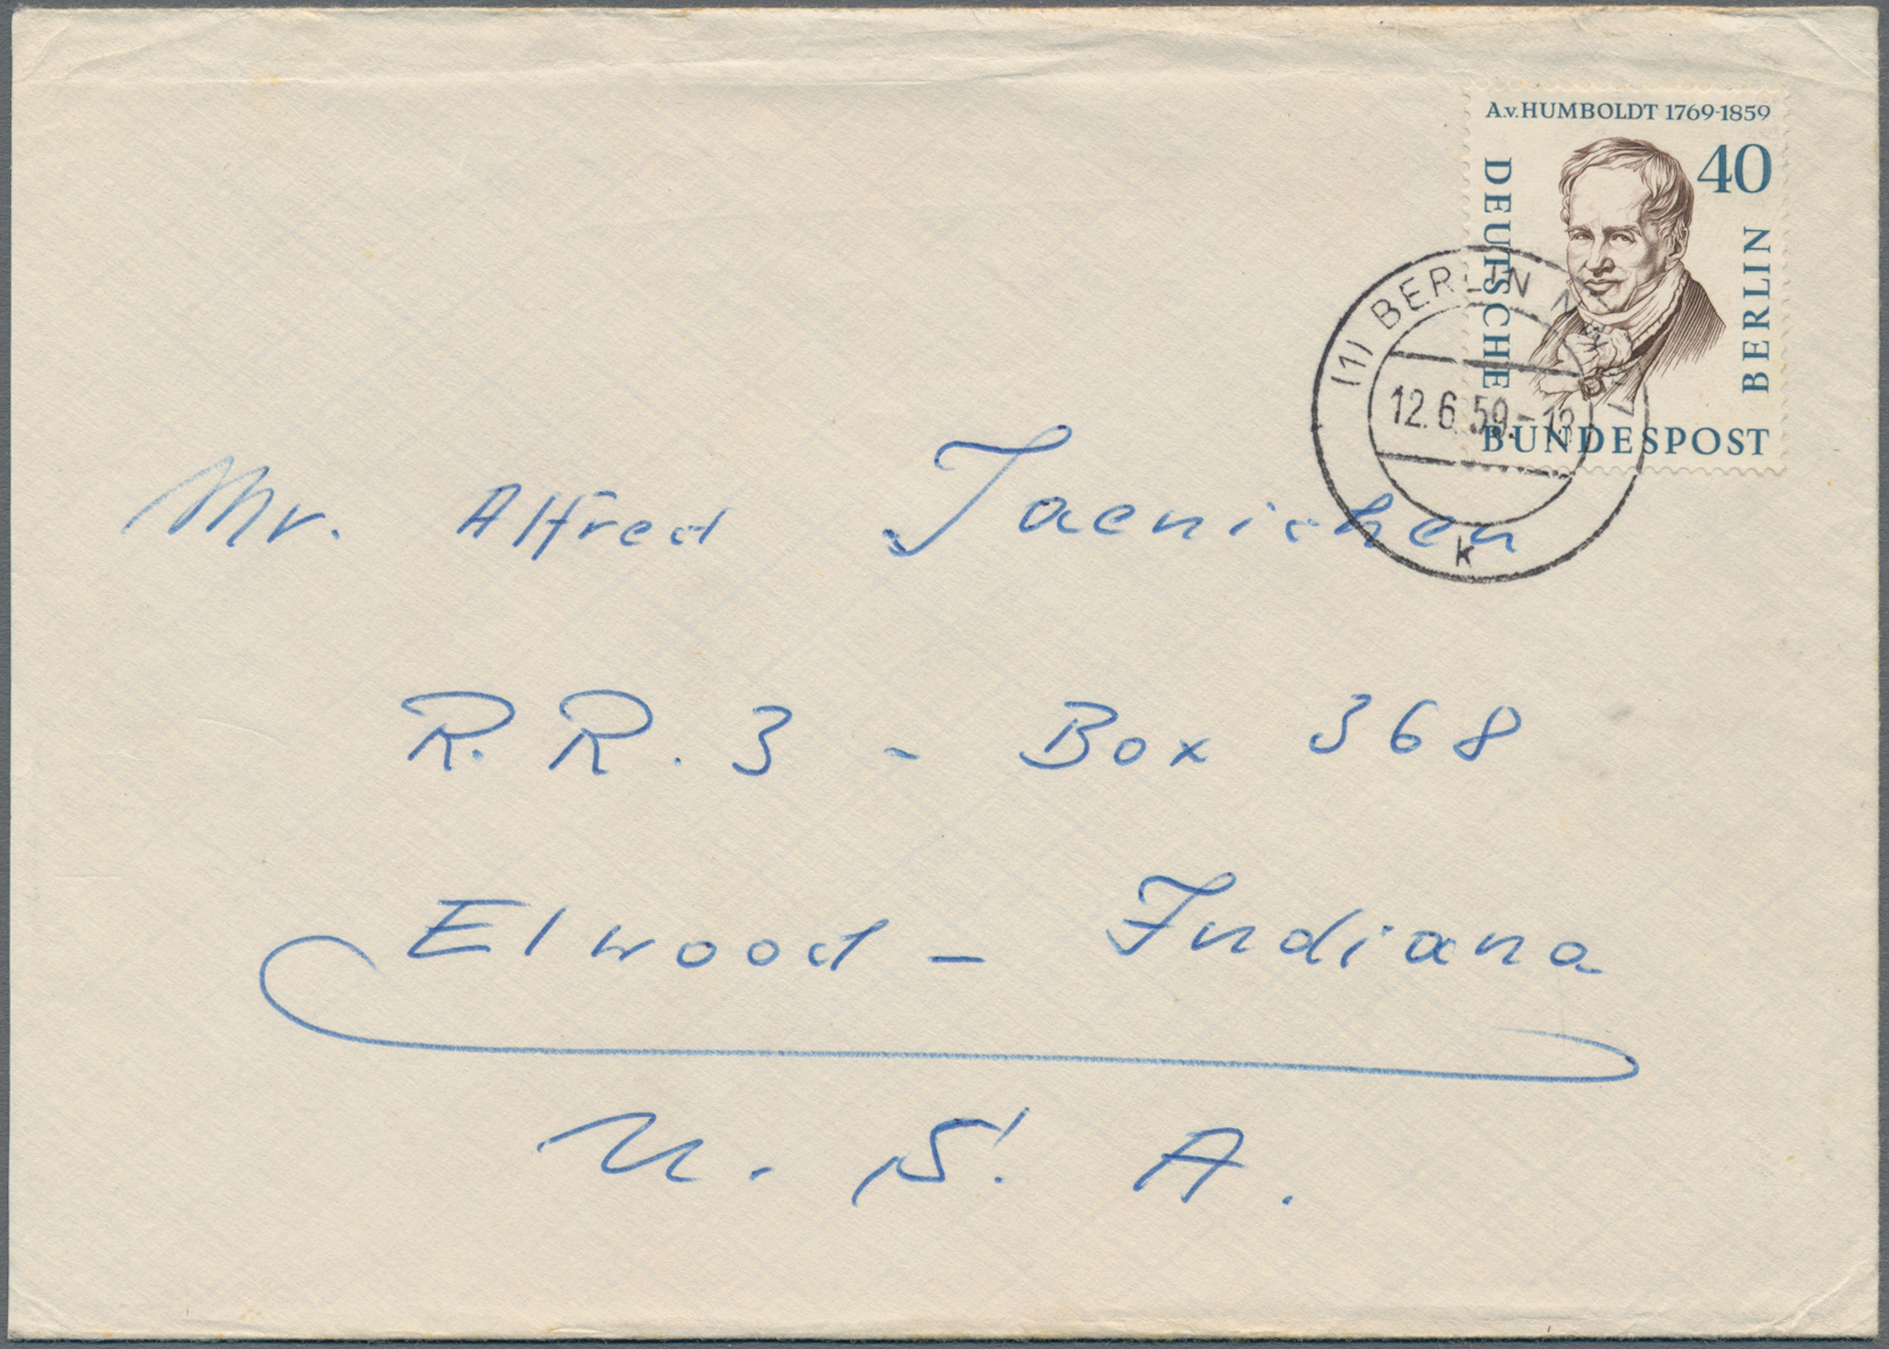 A.v.HUMBOLDT 1769-1859
40
DEUTSCHE
BERLIN
BUNDESPOST
(1) BERLIN
12.6.59.-13
k
Mr. Alfred Jaenichen
R.R.3 - Box 368
Elwood - Indiana
U.S.A.